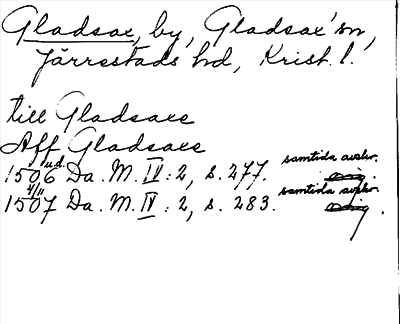 Gladsax, by, Gladsax' sn,
Järrestads hd, Krist. l.
till Gladsaxe
Aff Gladsaxe
1506 u.d. Da. M. IV: 2, s. 277. samtida avskr.
1507 4/11 Da. M. IV: 2, s. 283. samtida avskr.